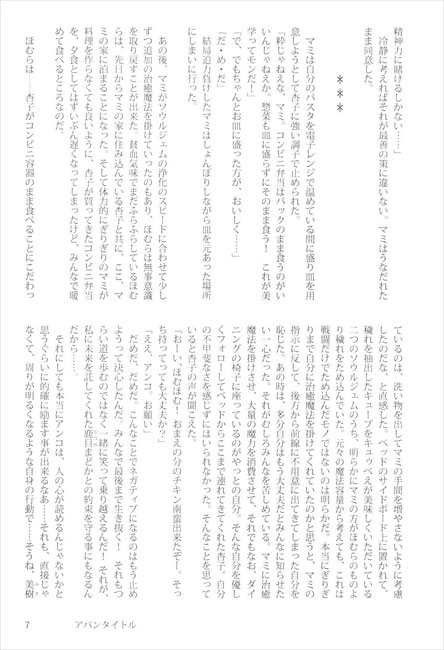 精神力に賭けるしかない……」
　冷静に考えればそれが最善の策に違いない。マミはうなだれた
まま同意した。
＊＊＊
　マミは自分のパスタを電子レンジで温めている間に盛り皿を用
意しようとして杏子に強い調子で止められた。
「粋じゃねえな、マミ。コンビニ弁当はパックのまま食うのがい
いんじゃねえか。惣菜も皿に盛らずにそのまま食う！　これが美
学ってモンだ！」
「で、でもちゃんとお皿に盛った方が、おいしく……」
「だ・め・だ」
　結局迫力負けしたマミはしょんぼりしながら皿を元あった場所
にしまいに行った。
　あの後、マミがソウルジェムの浄化のスピードに合わせて少し
ずつ追加の治癒魔法を掛けていったのもあり、ほむらは無事意識
を取り戻すことが出来た。貧血気味でまだふらふらしているほむ
らは、先日からマミの家に住み込んでいる杏子と共に、ここ、マ
ミの家に泊まることになった。そして体力的にぎりぎりのマミが
料理を作らなくても良いように、杏子が買ってきたコンビニ弁当
を、夕食としてはずいぶん遅くなってしまったけど、みんなで暖
めて食べるところなのだ。
　ほむらは　　杏子がコンビニ容器のまま食べることにこだわっ
ているのは、洗い物を出してマミの手間を増やさないように考慮
したのだな、と直感した。ベッドのサイドボード上に置かれて、
穢れを抽出したキューブをキュゥべえが美味しくいただいている
二つのソウルジェムのうち、明らかにマミの方がほむらのものよ
り穢れをため込んでいた。元々の魔法容量から考えても、これは
戦闘だけでため込んだモノではないのは明らかだ。本当にぎりぎ
りまで自分に治癒魔法を掛けてくれていたのかと思うと、マミの
指示に反して、後方から前線に不用意に出てきてしまった自分を
恥じた。あの時は、多分自分はもう大丈夫だとみんなに知らせた
い一心だった。それがむしろみんなを苦しめている。マミに治癒
魔法を掛けさせ、大量の魔力を消費させて、それでもなお、ダイ
ニングの椅子に座っているのがやっとの自分。そんな自分を優し
くフォローしてベッドからここまで連れてきてくれた杏子。自分
の不甲斐なさを感じずにはいられなかった。そんなことを思って
いると杏子の声が聞こえた。
「おーい、ほむほむ！　おまえの分のチキン南蛮出来たぞー。そっ
ち持ってっても大丈夫か？」
「ええ、アンコ。お願い」
　だめだ、だめだ。こんなことでネガティブになるのはもう止め
ようって決心したんだ。みんなで最後まで生き抜く！　それもつ
らい道を歩むのではなくて一緒に笑って乗り越えるんだ！　それが、
私に未来を託してくれた鹿目まどかとの約束を守る事にもなるん
だから……。
　それにしても本当にアンコは、人の心が読めるんじゃないかと
思うぐらいに的確に励ます事が出来るなあ……それも、直接じゃ
なくて、周りが明るくなるような自身の行動で……そうね、美樹
アバンタイトル
7